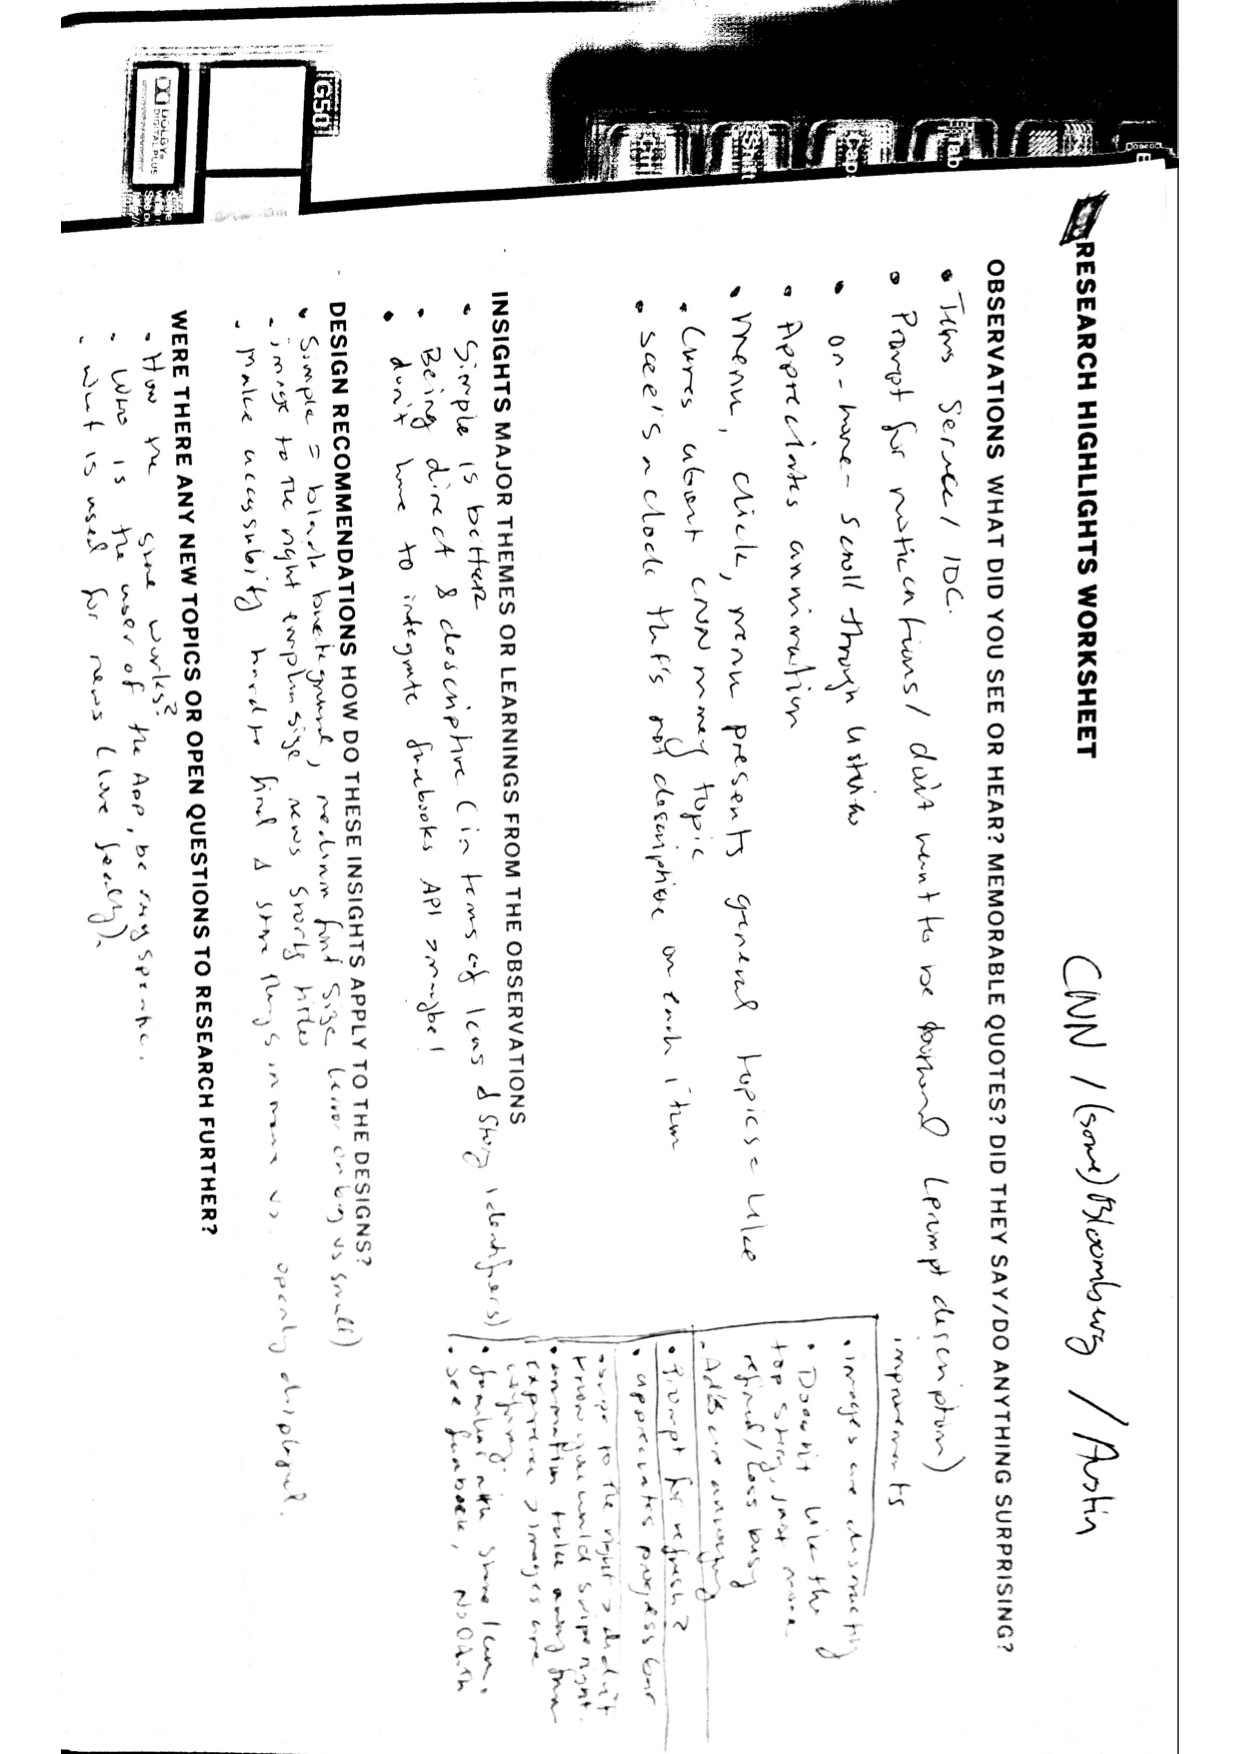 RESEARCH HIGHLIGHTS WORKSHEET
CNN / (some) Bloomberg / Austin
OBSERVATIONS WHAT DID YOU SEE OR HEAR? MEMORABLE QUOTES? DID THEY SAY/DO ANYTHING SURPRISING?
• Terms Service / IOC.
• Prompt for notications / don't want to be (prompt description)
• on-home- Scroll through
• Appreciates annimation
• Menu, click, menu presents general topics = like
• Cares about CNN money topic
• see's a clock that's not descriptive on each item
improvements
• images are distracting
• Doesn't like the
top story, just more
refined / less busy
• Ad's are annoying
• Prompt for refresh?
• appreciates progress bar
• swipe to the right > didn't
know you could swipe right.
• annimation take away from
experience > images are
• familiar with share icon.
• see facbook, No OAuth
INSIGHTS MAJOR THEMES OR LEARNINGS FROM THE OBSERVATIONS
• Simple is better
• Being direct & descriptive (in terms of Icons & Story identifiers)
• don't have to integrate facebooks API > maybe!
DESIGN RECOMMENDATIONS HOW DO THESE INSIGHTS APPLY TO THE DESIGNS?
• Simple = black background, medium font size big vs small)
• image to the right emphasize news story titles
• Make accessubity hard to find & store things in menu vs. openly displayed.
WERE THERE ANY NEW TOPICS OR OPEN QUESTIONS TO RESEARCH FURTHER?
• How the works?
• Who is the user of the App, be
• What is used for news (live
G50
DOLBY
DIGITAL PLUS
Ctrl
Shift
Cap
Tab